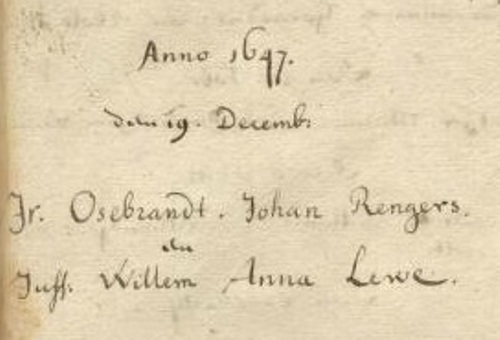 Anno 1647.
den 19. Decemb:
Jr. Osebrandt. Johan Rengers.
en
Juff. Willem Anna Lewe.